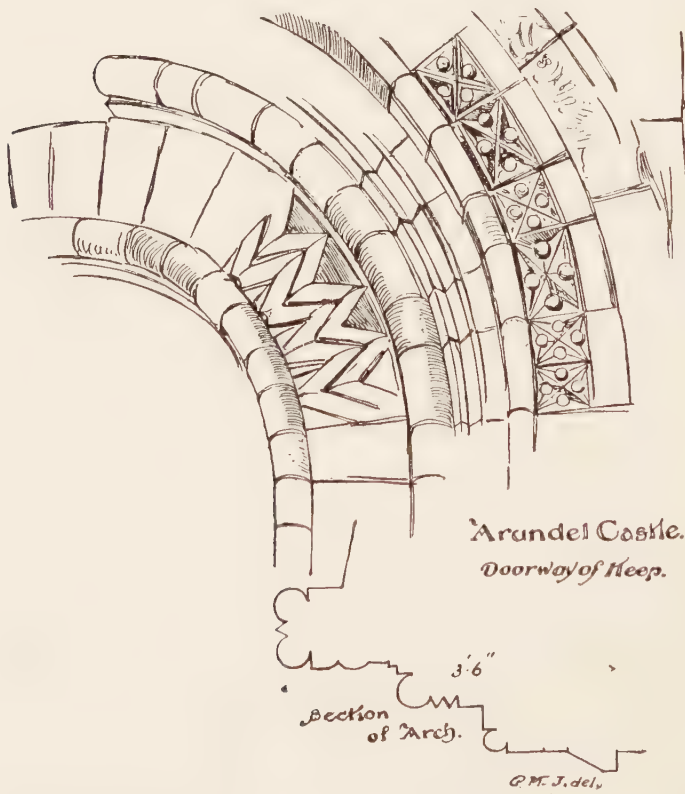 Arundel Castle.
Doorway of Keep.
3'.6"
Section
of Arch.
P.M.J. del,